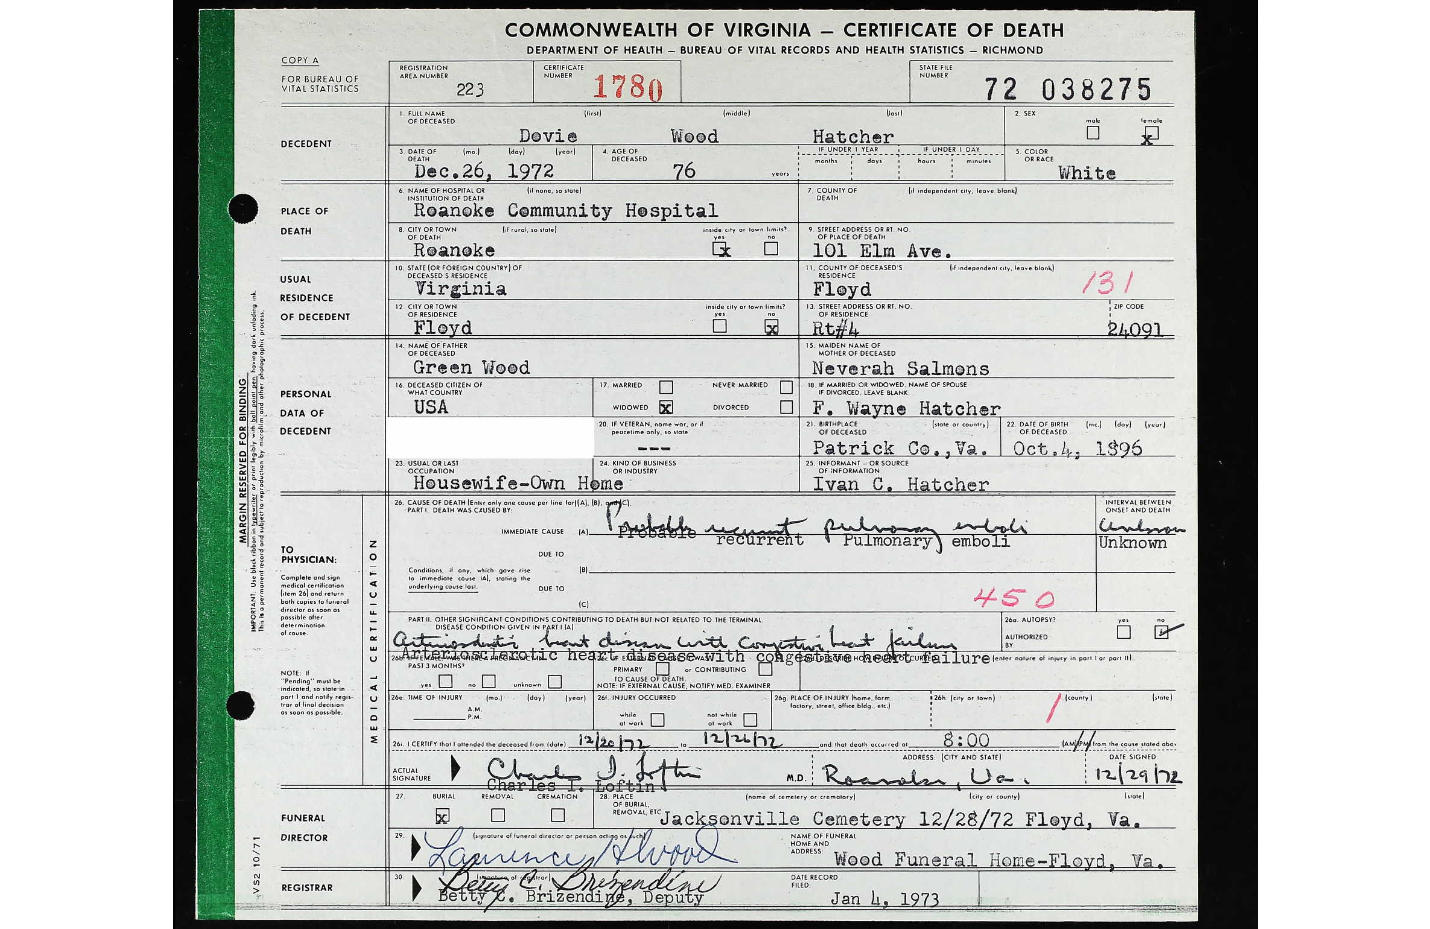 COMMONWEALTH OF VIRGINIA — CERTIFICATE OF DEATH
DEPARTMENT OF HEALTH — BUREAU OF VITAL RECORDS AND HEALTH STATISTICS — RICHMOND
COPY A
FOR BUREAU OF VITAL STATISTICS
REGISTRATION AREA NUMBER 223
CERTIFICATE NUMBER 1780
STATE FILE NUMBER 72 038275
DECEDENT
1. FULL NAME OF DECEASED (first) (middle) (last)
Dovie Wood Hatcher
2. SEX male female x
3. DATE OF DEATH (mo.) (day) (year)
Dec.26, 1972
4. AGE OF DECEASED 76 years
IF UNDER 1 YEAR months days
IF UNDER 1 DAY hours minutes
5. COLOR OR RACE White
PLACE OF DEATH
6. NAME OF HOSPITAL OR INSTITUTION OF DEATH (if none, so state)
Roanoke Community Hospital
7. COUNTY OF DEATH (if independent city, leave blank)
8. CITY OR TOWN OF DEATH (if rural, so state) inside city or town limits? yes x no
Roanoke
9. STREET ADDRESS OR RT. NO. OF PLACE OF DEATH
101 Elm Ave.
USUAL RESIDENCE OF DECEDENT
10. STATE (OR FOREIGN COUNTRY) OF DECEASED'S RESIDENCE
Virginia
11. COUNTY OF DECEASED'S RESIDENCE (if independent city, leave blank)
Floyd 131
12. CITY OR TOWN OF RESIDENCE inside city or town limits? yes no x
Floyd
13. STREET ADDRESS OR RT. NO. OF RESIDENCE ZIP CODE
Rt#4 24091
PERSONAL DATA OF DECEDENT
14. NAME OF FATHER OF DECEASED
Green Wood
15. MAIDEN NAME OF MOTHER OF DECEASED
Neverah Salmons
16. DECEASED CITIZEN OF WHAT COUNTRY
USA
17. MARRIED NEVER MARRIED
WIDOWED x DIVORCED
18. IF MARRIED OR WIDOWED, NAME OF SPOUSE IF DIVORCED, LEAVE BLANK
F. Wayne Hatcher
20. IF VETERAN, name war, or if peacetime only, so state
---
21. BIRTHPLACE OF DECEASED (state or country)
Patrick Co.,Va.
22. DATE OF BIRTH OF DECEASED (mo.) (day) (year)
Oct.4, 1896
23. USUAL OR LAST OCCUPATION
Housewife-Own Home
24. KIND OF BUSINESS OR INDUSTRY
25. INFORMANT - OR SOURCE OF INFORMATION
Ivan C. Hatcher
MARGIN RESERVED FOR BINDING
IMPORTANT. Use black ribbon in typewriter or print legibly with ball point pen, having dark unfading ink.
This is a permanent record and subject to reproduction by microfilm and other photographic process.
VS2 10/71
TO PHYSICIAN:
Complete and sign medical certification (item 26) and return both copies to funeral director as soon as possible after determination of cause.
NOTE: If "Pending" must be indicated, so state in part I and notify registrar of final decision as soon as possible.
MEDICAL CERTIFICATION
26. CAUSE OF DEATH (Enter only one cause per line for (A), (B), and (C).
PART I. DEATH WAS CAUSED BY:
INTERVAL BETWEEN ONSET AND DEATH
IMMEDIATE CAUSE (A) Probable recurrent pulmonary emboli Unknown
Probable recurrent Pulmonary emboli Unknown
DUE TO
Conditions, if any, which gave rise to immediate cause (A), stating the underlying cause last.
(B)
DUE TO
(C)
450
PART II. OTHER SIGNIFICANT CONDITIONS CONTRIBUTING TO DEATH BUT NOT RELATED TO THE TERMINAL DISEASE CONDITION GIVEN IN PART I (A)
Arteriosclerotic heart disease with congestive heart failure
Arteriosclerotic heart disease with congestive heart failure
26a. AUTOPSY? yes no
AUTHORIZED BY
PAST 3 MONTHS?
yes no unknown
PRIMARY or CONTRIBUTING
TO CAUSE OF DEATH.
NOTE: IF EXTERNAL CAUSE, NOTIFY MED. EXAMINER
(enter nature of injury in part I or part II)
26e. TIME OF INJURY (mo.) (day) (year)
A.M.
P.M.
26f. INJURY OCCURRED
while at work not while at work
26g. PLACE OF INJURY (home, farm, factory, street, office bldg., etc.)
26h. (city or town) (county) (state)
1
26i. I CERTIFY that I attended the deceased from (date) 12/20/72 to 12/26/72 and that death occurred at 8:00 (AM/PM) from the cause stated above
ACTUAL SIGNATURE Charles I. Loftin M.D.
Charles I. Loftin
ADDRESS (CITY AND STATE) Roanoke, Va.
DATE SIGNED 12/29/72
FUNERAL DIRECTOR
27. BURIAL x REMOVAL CREMATION
28. PLACE OF BURIAL, REMOVAL, ETC. (name of cemetery or crematory) (city or county) (state)
Jacksonville Cemetery 12/28/72 Floyd, Va.
29. (signature of funeral director or person acting as such)
NAME OF FUNERAL HOME AND ADDRESS: Wood Funeral Home-Floyd, Va.
REGISTRAR
30. (signature of registrar)
Betty C. Brizendine
Betty C. Brizendine, Deputy
DATE RECORD FILED: Jan 4, 1973